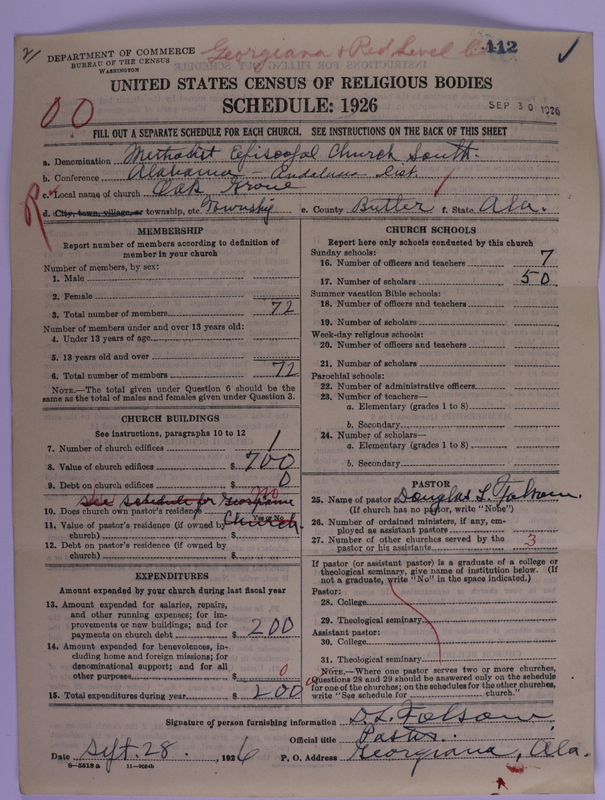 2/
DEPARTMENT OF COMMERCE
BUREAU OF THE CENSUS
WASHINGTON
Georgiana & Red Level
112
UNITED STATES CENSUS OF RELIGIOUS BODIES
SCHEDULE: 1926
SEP 30 1926
00
FILL OUT A SEPARATE SCHEDULE FOR EACH CHURCH. SEE INSTRUCTIONS ON THE BACK OF THIS SHEET
a. Denomination Methodist Episcopal Church South.
b. Conference Alabama - Andalusia Dist.
c. Local name of church Oak Grove
d. City, town, village, or township, etc. Township e. County Butler f. State Ala.
R
MEMBERSHIP
Report number of members according to definition of member in your church
Number of members, by sex:
1. Male
2. Female
3. Total number of members 72
Number of members under and over 13 years old:
4. Under 13 years of age
5. 13 years old and over
6. Total number of members 72
NOTE.—The total given under Question 6 should be the same as the total of males and females given under Question 3.
CHURCH BUILDINGS
See instructions, paragraphs 10 to 12
7. Number of church edifices 1
8. Value of church edifices $ 700
9. Debt on church edifices $ 0
see schedule for Georgiana
10. Does church own pastor's residence Yes or No
Church.
11. Value of pastor's residence (if owned by church) $
12. Debt on pastor's residence (if owned by church) $
EXPENDITURES
Amount expended by your church during last fiscal year
13. Amount expended for salaries, repairs, and other running expenses; for improvements or new buildings; and for payments on church debt $ 200
14. Amount expended for benevolences, including home and foreign missions; for denominational support; and for all other purposes $ 0
15. Total expenditures during year $ 200
CHURCH SCHOOLS
Report here only schools conducted by this church
Sunday schools:
16. Number of officers and teachers 7
17. Number of scholars 50
Summer vacation Bible schools:
18. Number of officers and teachers
19. Number of scholars
Week-day religious schools:
20. Number of officers and teachers
21. Number of scholars
Parochial schools:
22. Number of administrative officers
23. Number of teachers—
a. Elementary (grades 1 to 8)
b. Secondary
24. Number of scholars—
a. Elementary (grades 1 to 8)
b. Secondary
PASTOR
25. Name of pastor Douglas L. Folsom.
(If church has no pastor, write "None")
26. Number of ordained ministers, if any, employed as assistant pastors
27. Number of other churches served by the pastor or his assistants 3
If pastor (or assistant pastor) is a graduate of a college or theological seminary, give name of institution below. (If not a graduate, write "No" in the space indicated.)
Pastor:
28. College
29. Theological seminary
Assistant pastor:
30. College
31. Theological seminary
NOTE.—Where one pastor serves two or more churches, Questions 28 and 29 should be answered only on the schedule for one of the churches; on the schedules for the other churches, write "See schedule for church."
Signature of person furnishing information D. L. Folsom,
Official title Pastor.
Date Sept. 28. , 1926 P. O. Address Georgiana, Ala.
8—5518 a